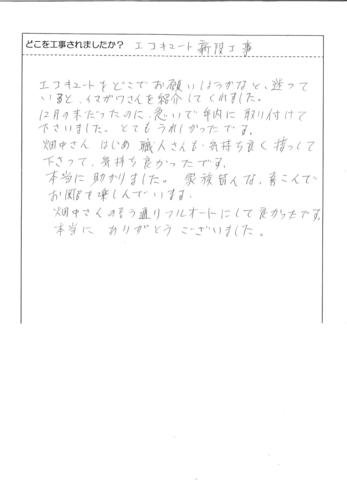 どこを工事されましたか？ エコキュート新設工事
エコキュートをどこでお願いしようかなと、迷って
いると、イマガワさんを紹介してくれました。
12月の末だったのに、急いで年内に取り付けて
下さいました。とてもうれしかったです。
畑中さん はじめ 職人さんも、気持ち良く 接して
下さって、気持ち良かったです。
本当に助かりました。家族皆んな、喜こんで
お風呂を楽しんでいます。
畑中さんの言う通りフルオートにして良かったです。
本当に ありがとう ございました。